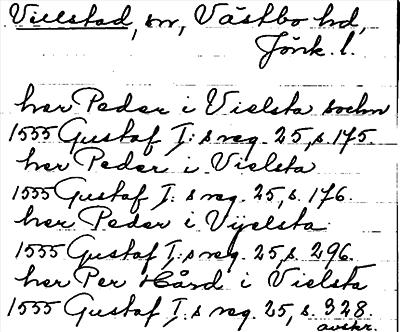 Villstad, sn, Västbo hd,
Jönk. l.
her Peder i Vielsta sochn
1555 Gustaf I:s reg. 25, s. 175.
her Peder i Vielsta
1555 Gustaf I:s reg. 25, s. 176.
her Peder i Vijelsta
1555 Gustaf I:s reg. 25, s. 296.
her Per Hård i Vielsta
1555 Gustaf I:s reg. 25, s. 328.
avskr.